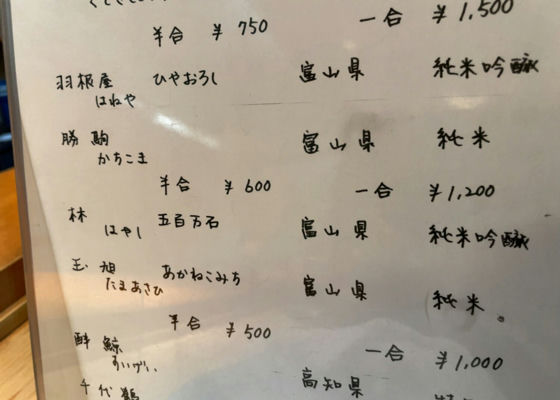 半合 ¥750 一合 ¥1,500
羽根屋 ひやおろし 富山県 純米吟醸
はねや
勝駒 富山県 純米
かちこま
半合 ¥600 一合 ¥1,200
林 五百万石 富山県 純米吟醸
はやし
玉旭 あかねこみち 富山県 純米
たまあさひ
半合 ¥500 一合 ¥1,000
酔鯨 高知県
すいげい
千代鶴